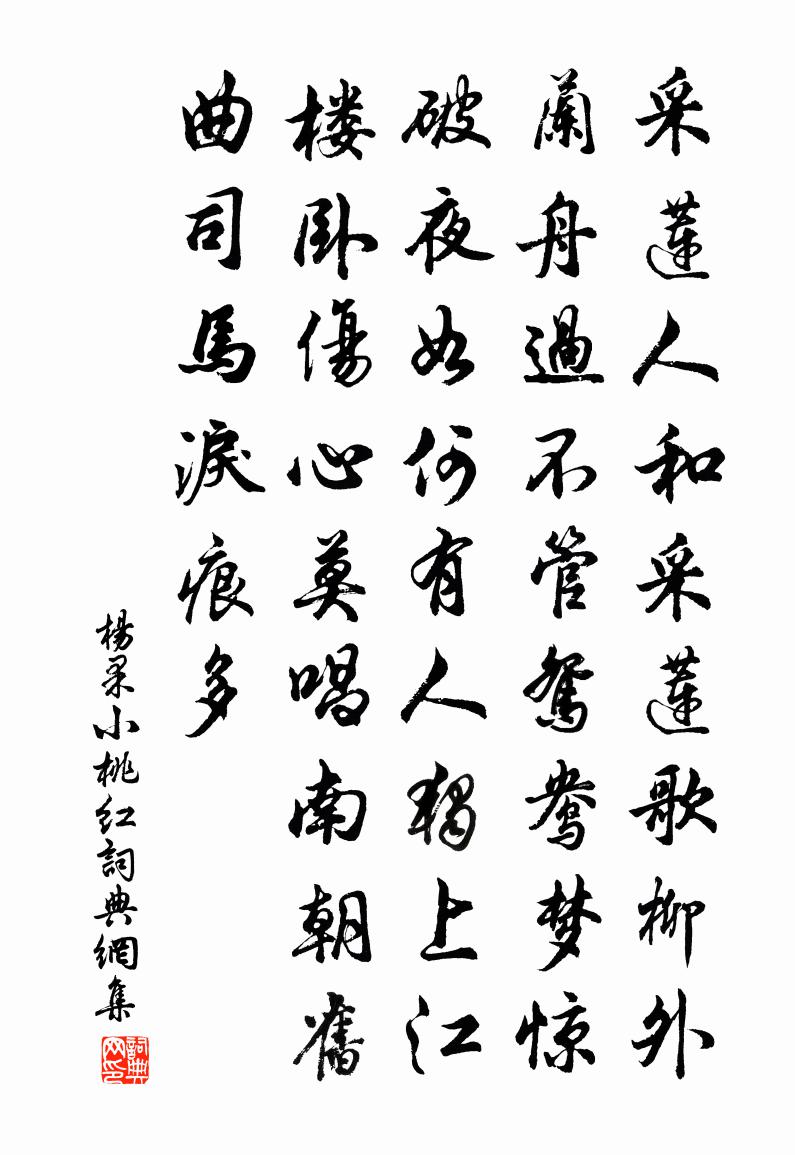 采蓮人和采蓮歌柳外
蘭舟過不管鴛鴦梦惊
破夜如何有人獨上江
楼卧傷心莫唱南朝舊
曲司馬淚痕多
楊果小桃红詞典網集
詞典网印